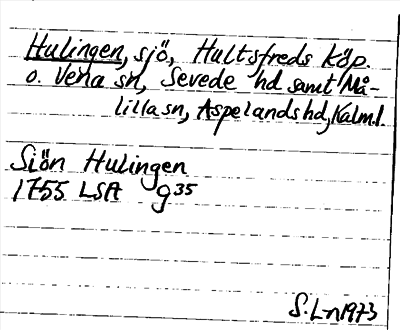 Hulingen, sjö, Hultsfreds köp.
o. Vena sn, Sevede hd samt Må-
lilla sn, Aspelands hd, Kalm.l
Siön Hulingen
1755 LSA g35
S.Ln 1973